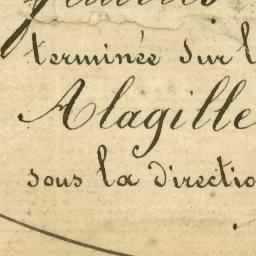 terminée sur l
Alagille
sous la directio